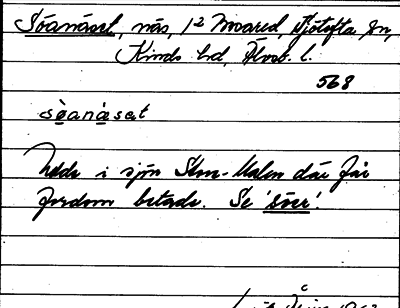 Sóanäset, näs, 1² Moared, Tjötofta sn,
Kinds hd, Älvsb. l.
568
sòanäsat
Udde i sjön Stm-Malen där får
fordom betade. Se 'sóer'.